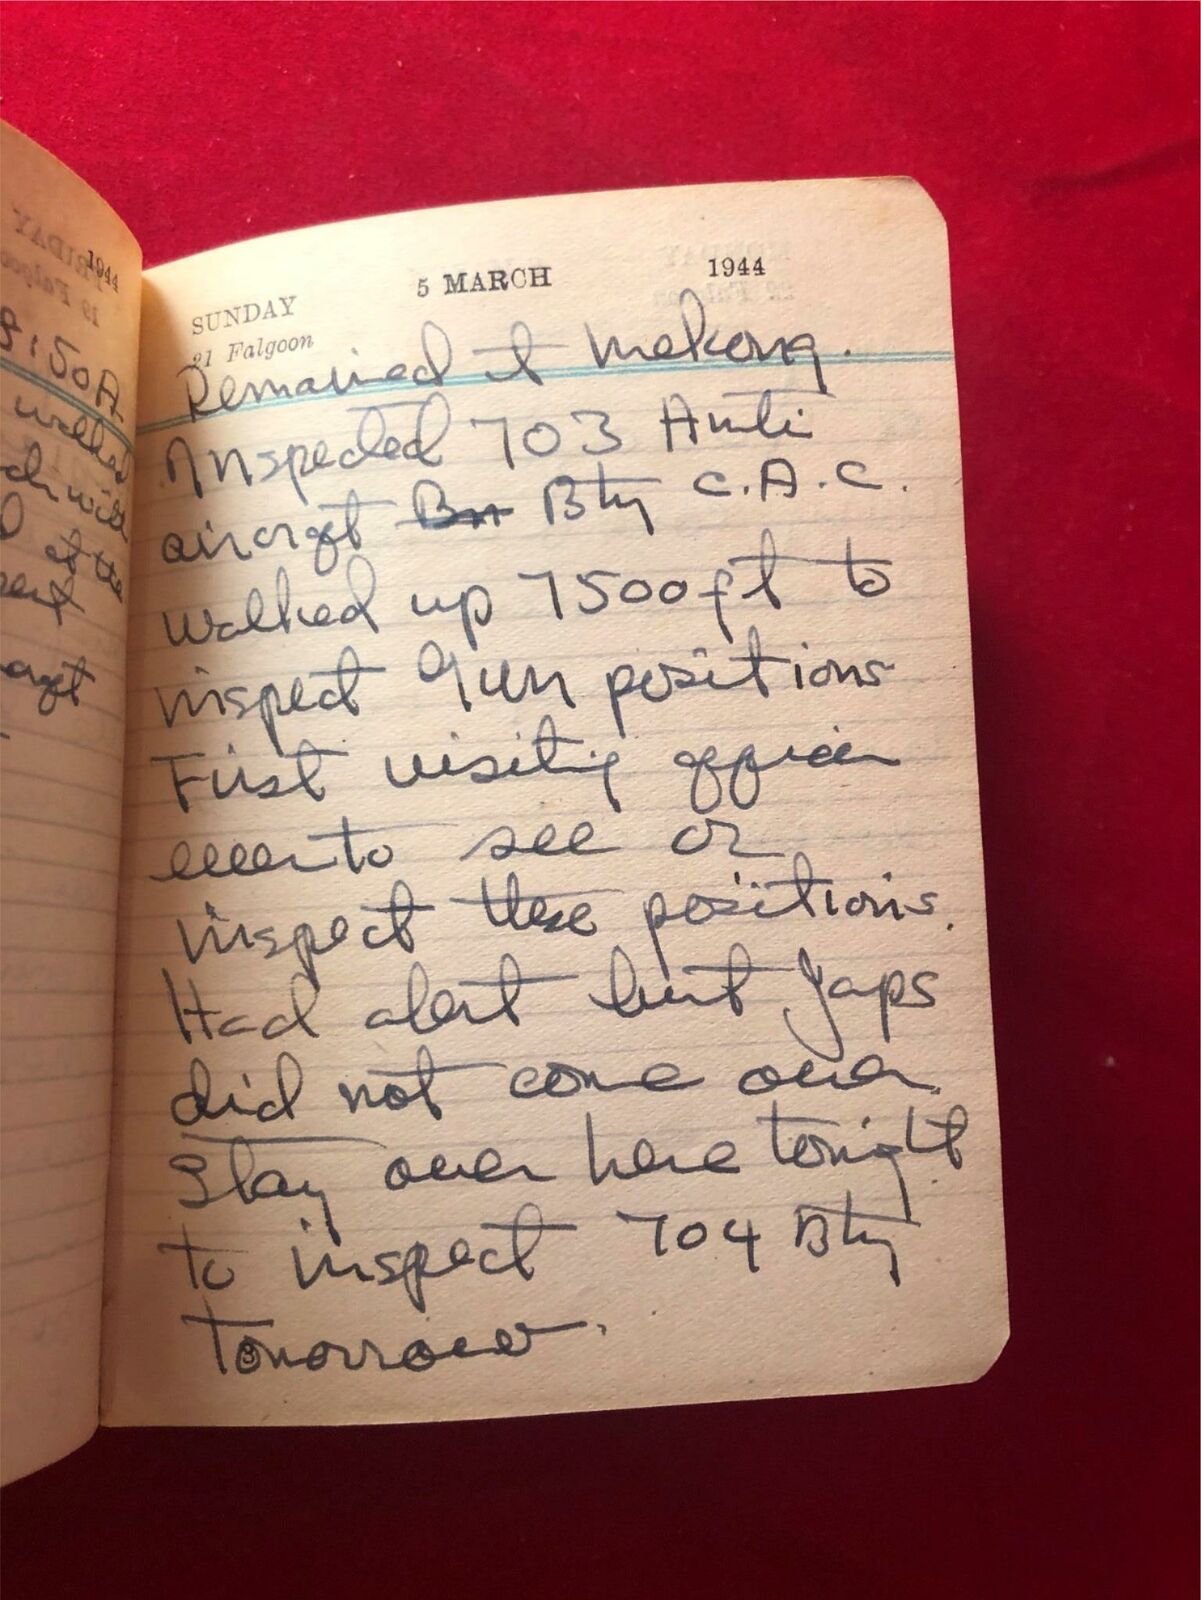 1944
8:50A
walked
ch with
at the
5 MARCH 1944
SUNDAY
21 Falgoon
Remained at mekong.
Inspected 703 Anti
aircraft Bn Bty C.A.C.
walked up 7500 ft to
inspect gun positions
First visiting officer
ever to see or
inspect these positions.
Had alert but Japs
did not come over.
Stay over here tonight
to inspect 704 Bty
tomorrow.